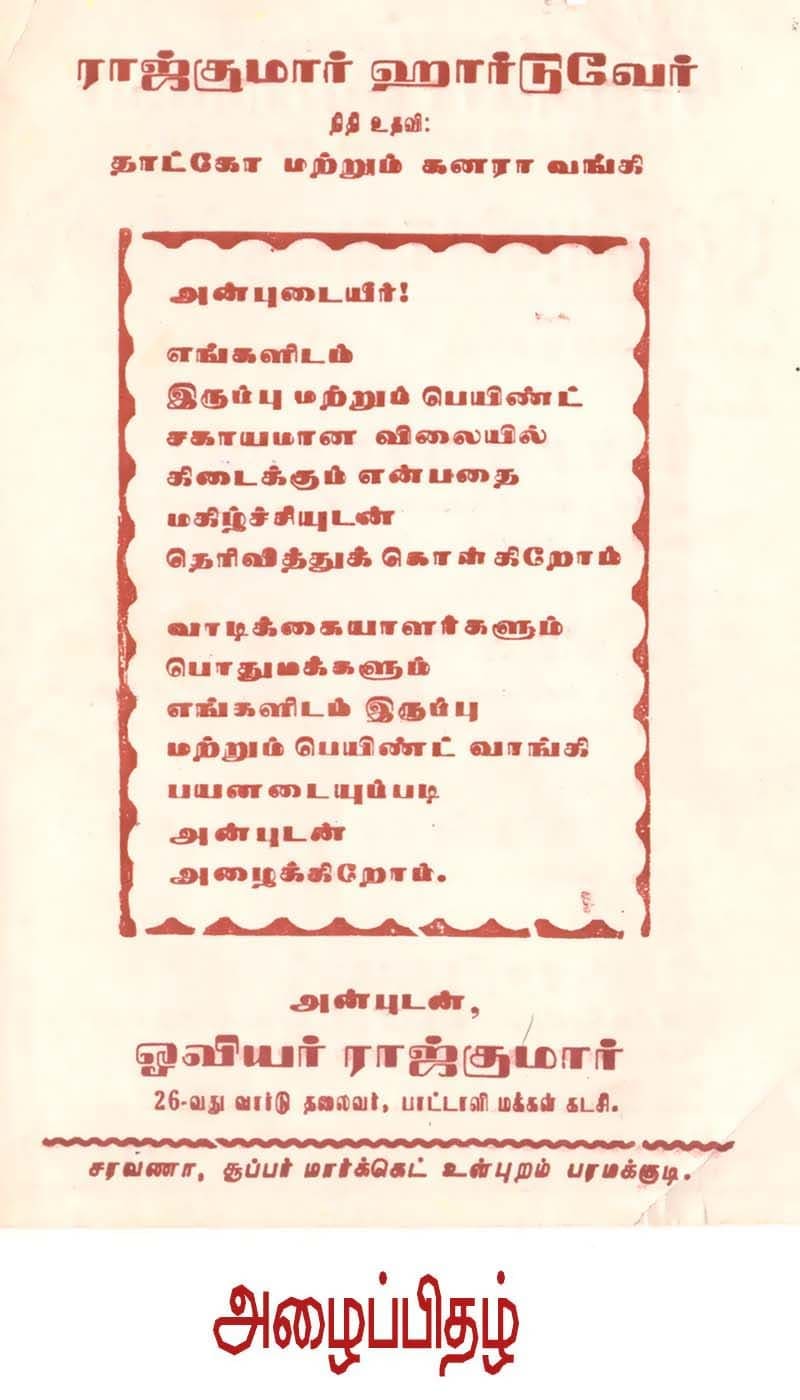 ராஜ்குமார் ஹார்டுவேர்
நிதி உதவி:
தாட்கோ மற்றும் கனரா வங்கி
அன்புடையீர்!
எங்களிடம்
இரும்பு மற்றும் பெயிண்ட்
சகாயமான விலையில்
கிடைக்கும் என்பதை
மகிழ்ச்சியுடன்
தெரிவித்துக் கொள்கிறோம்
வாடிக்கையாளர்களும்
பொதுமக்களும்
எங்களிடம் இரும்பு
மற்றும் பெயிண்ட் வாங்கி
பயனடையும்படி
அன்புடன்
அழைக்கிறோம்.
அன்புடன்,
ஓவியர் ராஜ்குமார்
26-வது வார்டு தலைவர், பாட்டாளி மக்கள் கட்சி.
சரவணா, சூப்பர் மார்க்கெட் உள்புறம் பரமக்குடி.
அழைப்பிதழ்